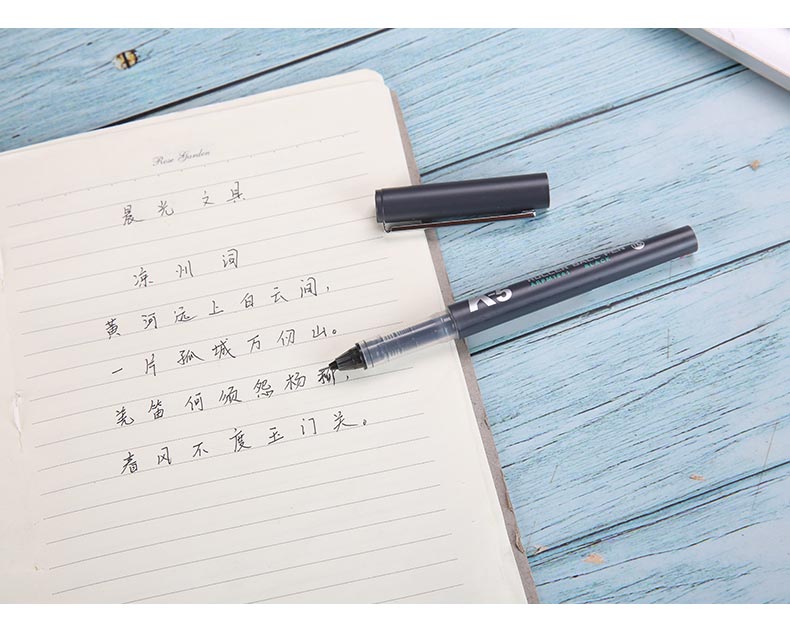 Rose Garden
晨光文具
凉州词
黄河远上白云间，
一片孤城万仞山。
羌笛何须怨杨柳，
春风不度玉门关。